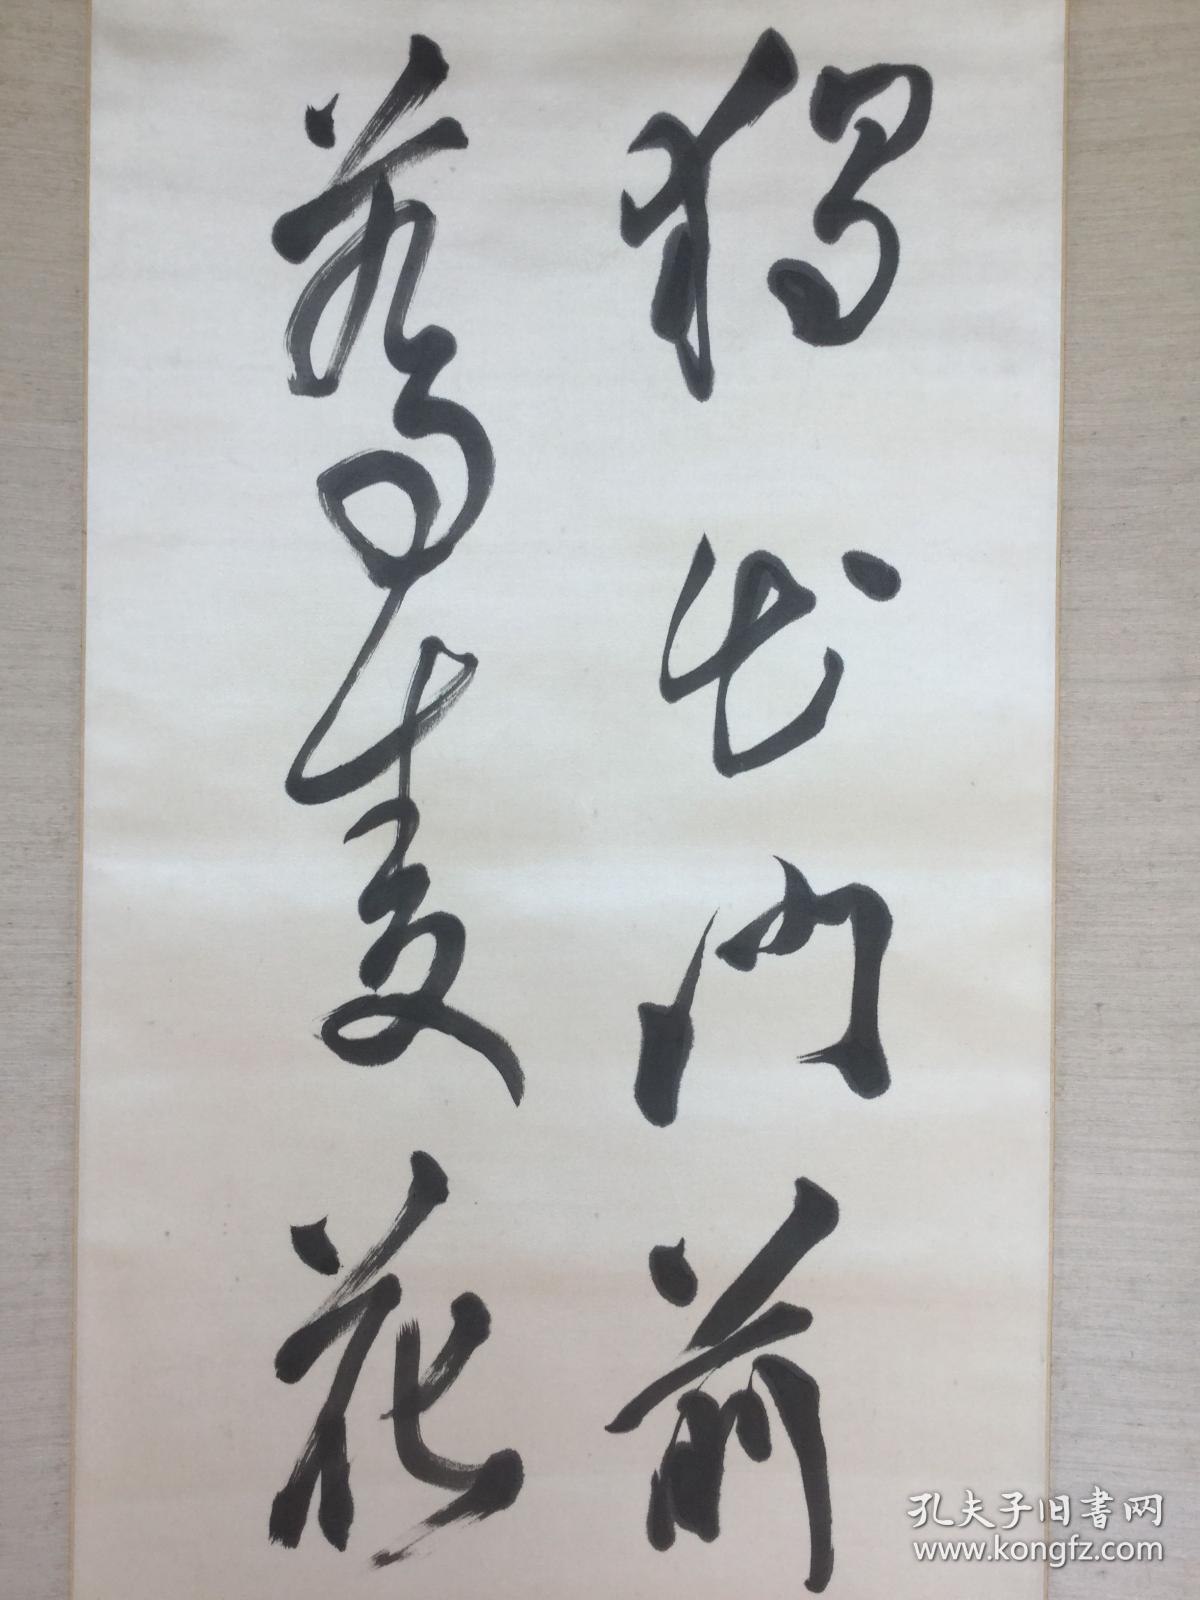 獨出門前
蕎麥花
孔夫子旧书网
www.kongfz.com